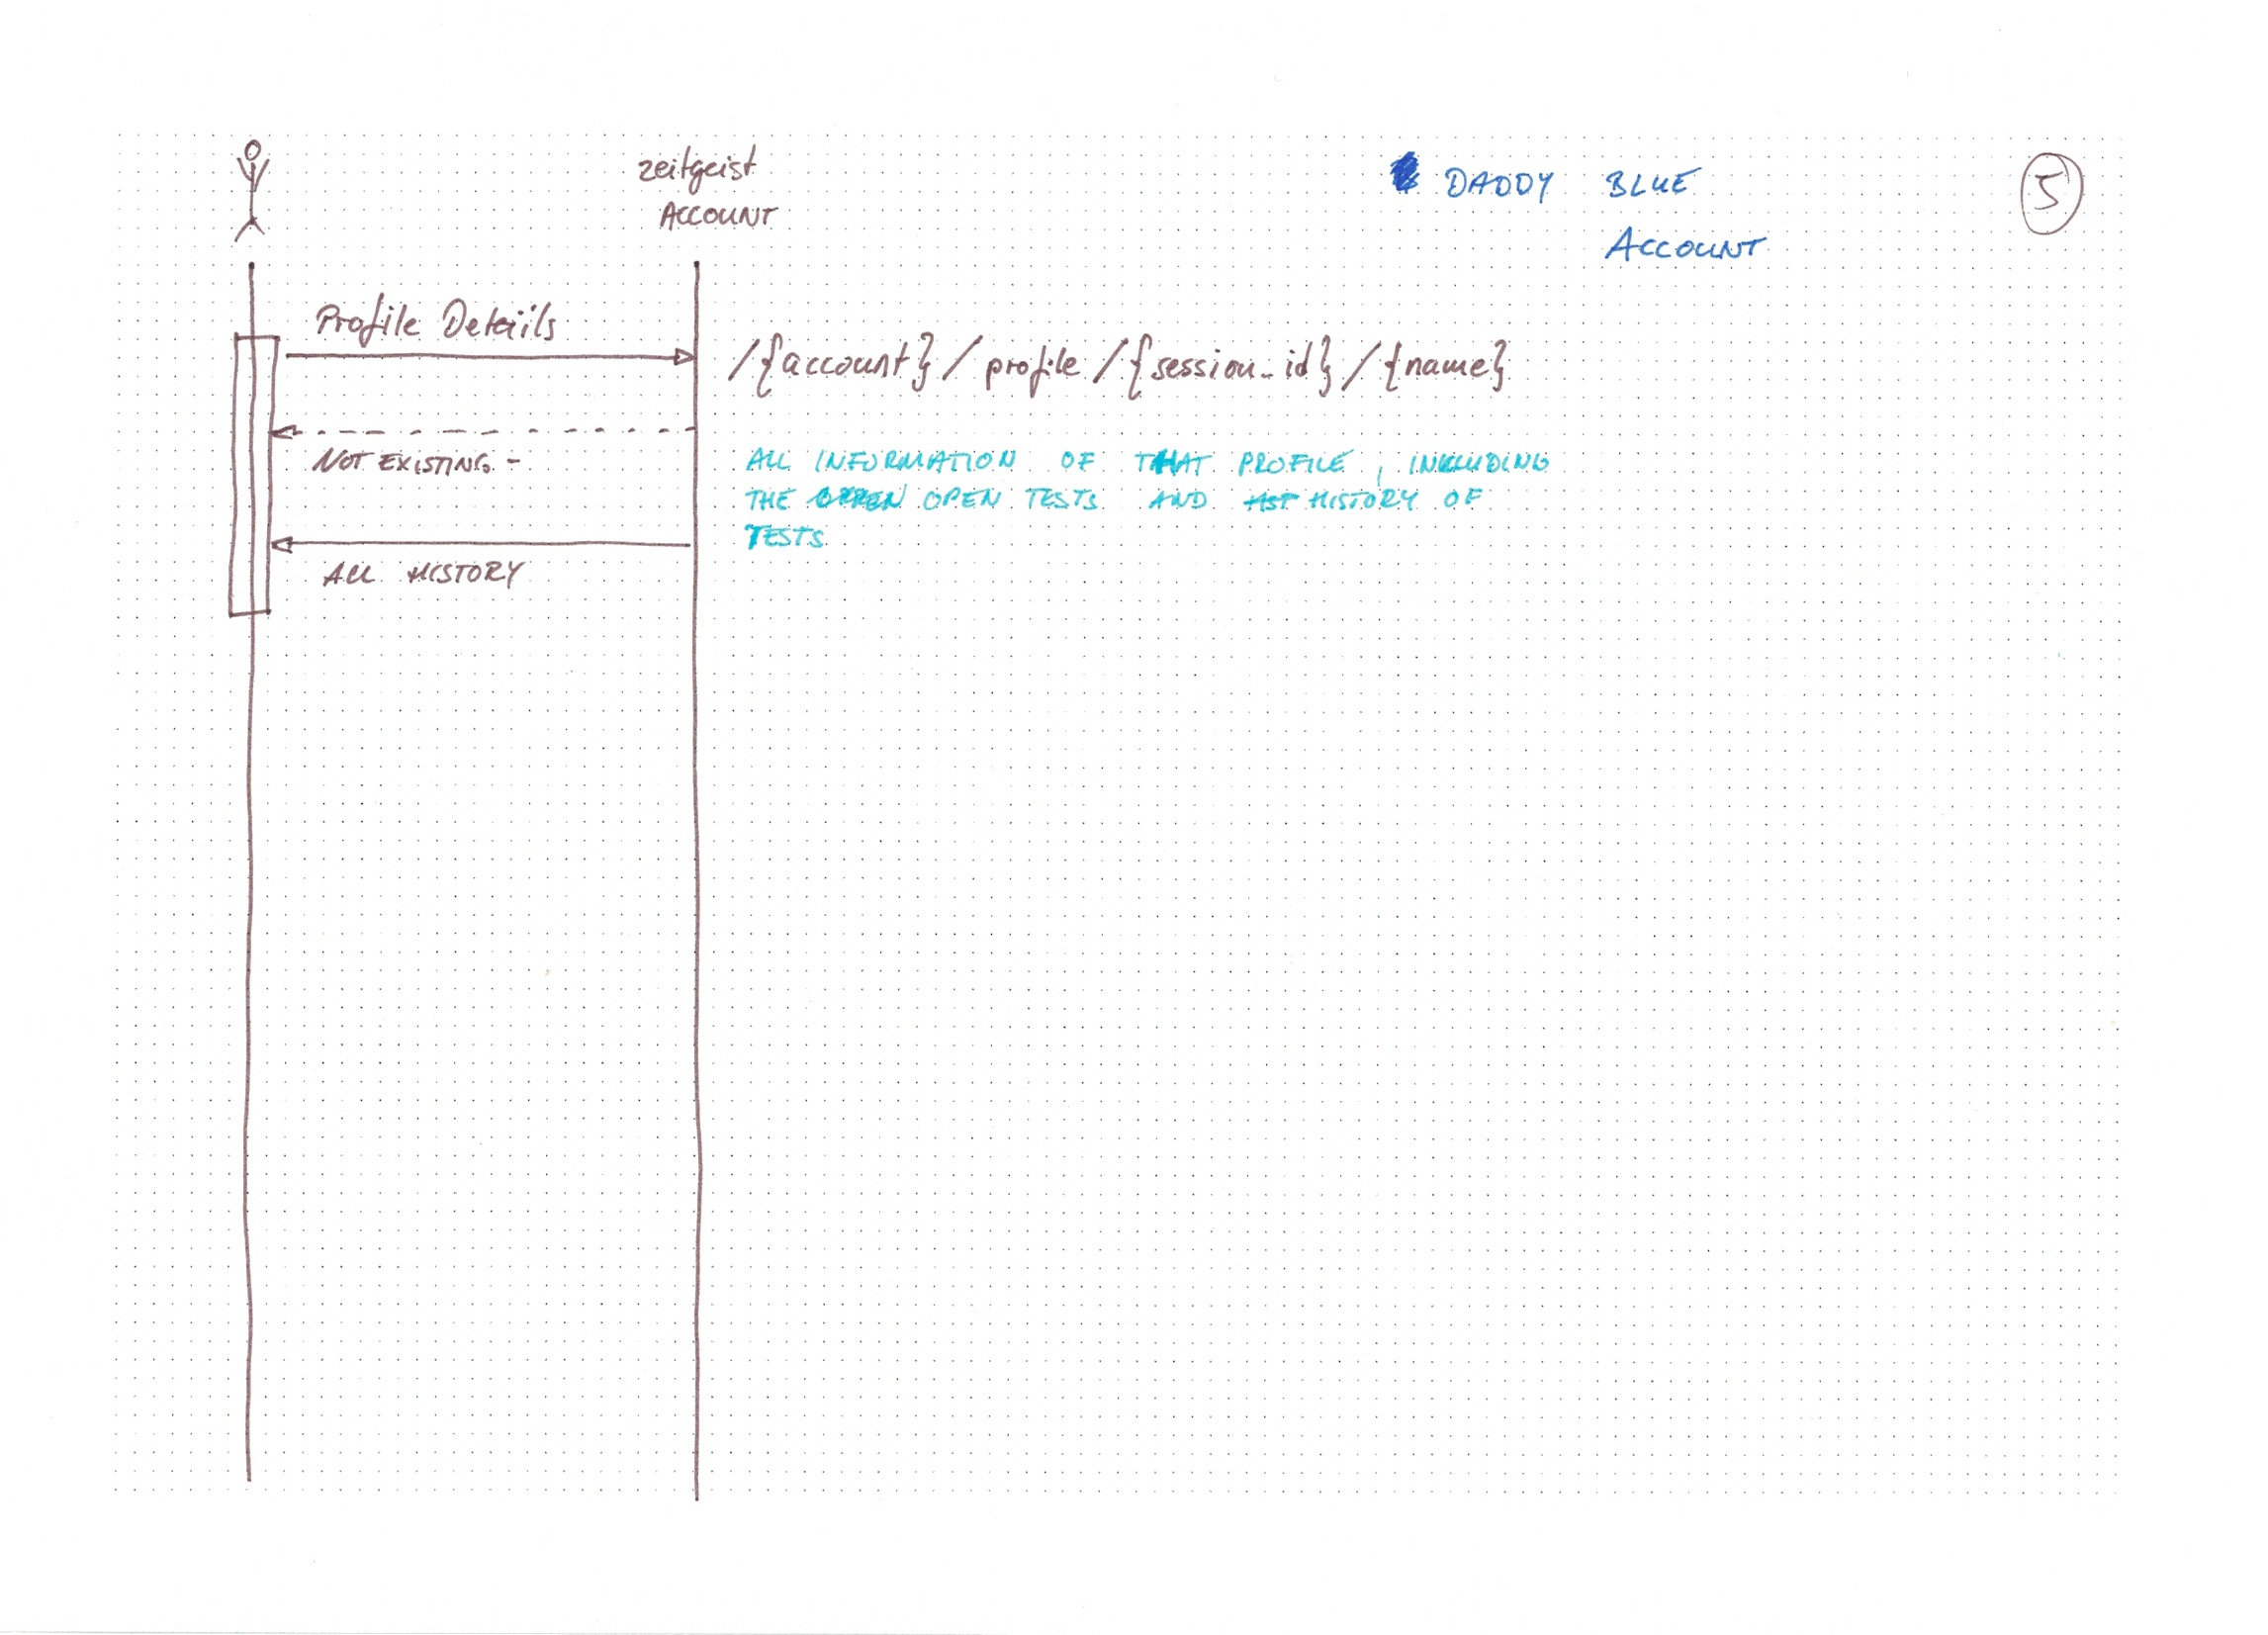 zeitgeist
ACCOUNT
DADDY BLUE
ACCOUNT
5
Profile Details
/{account}/profile/{session_id}/{name}
NOT EXISTING -
ALL INFORMATION OF THAT PROFILE, INKLUDING
THE OPEN TESTS AND HISTORY OF
TESTS
ALL HISTORY